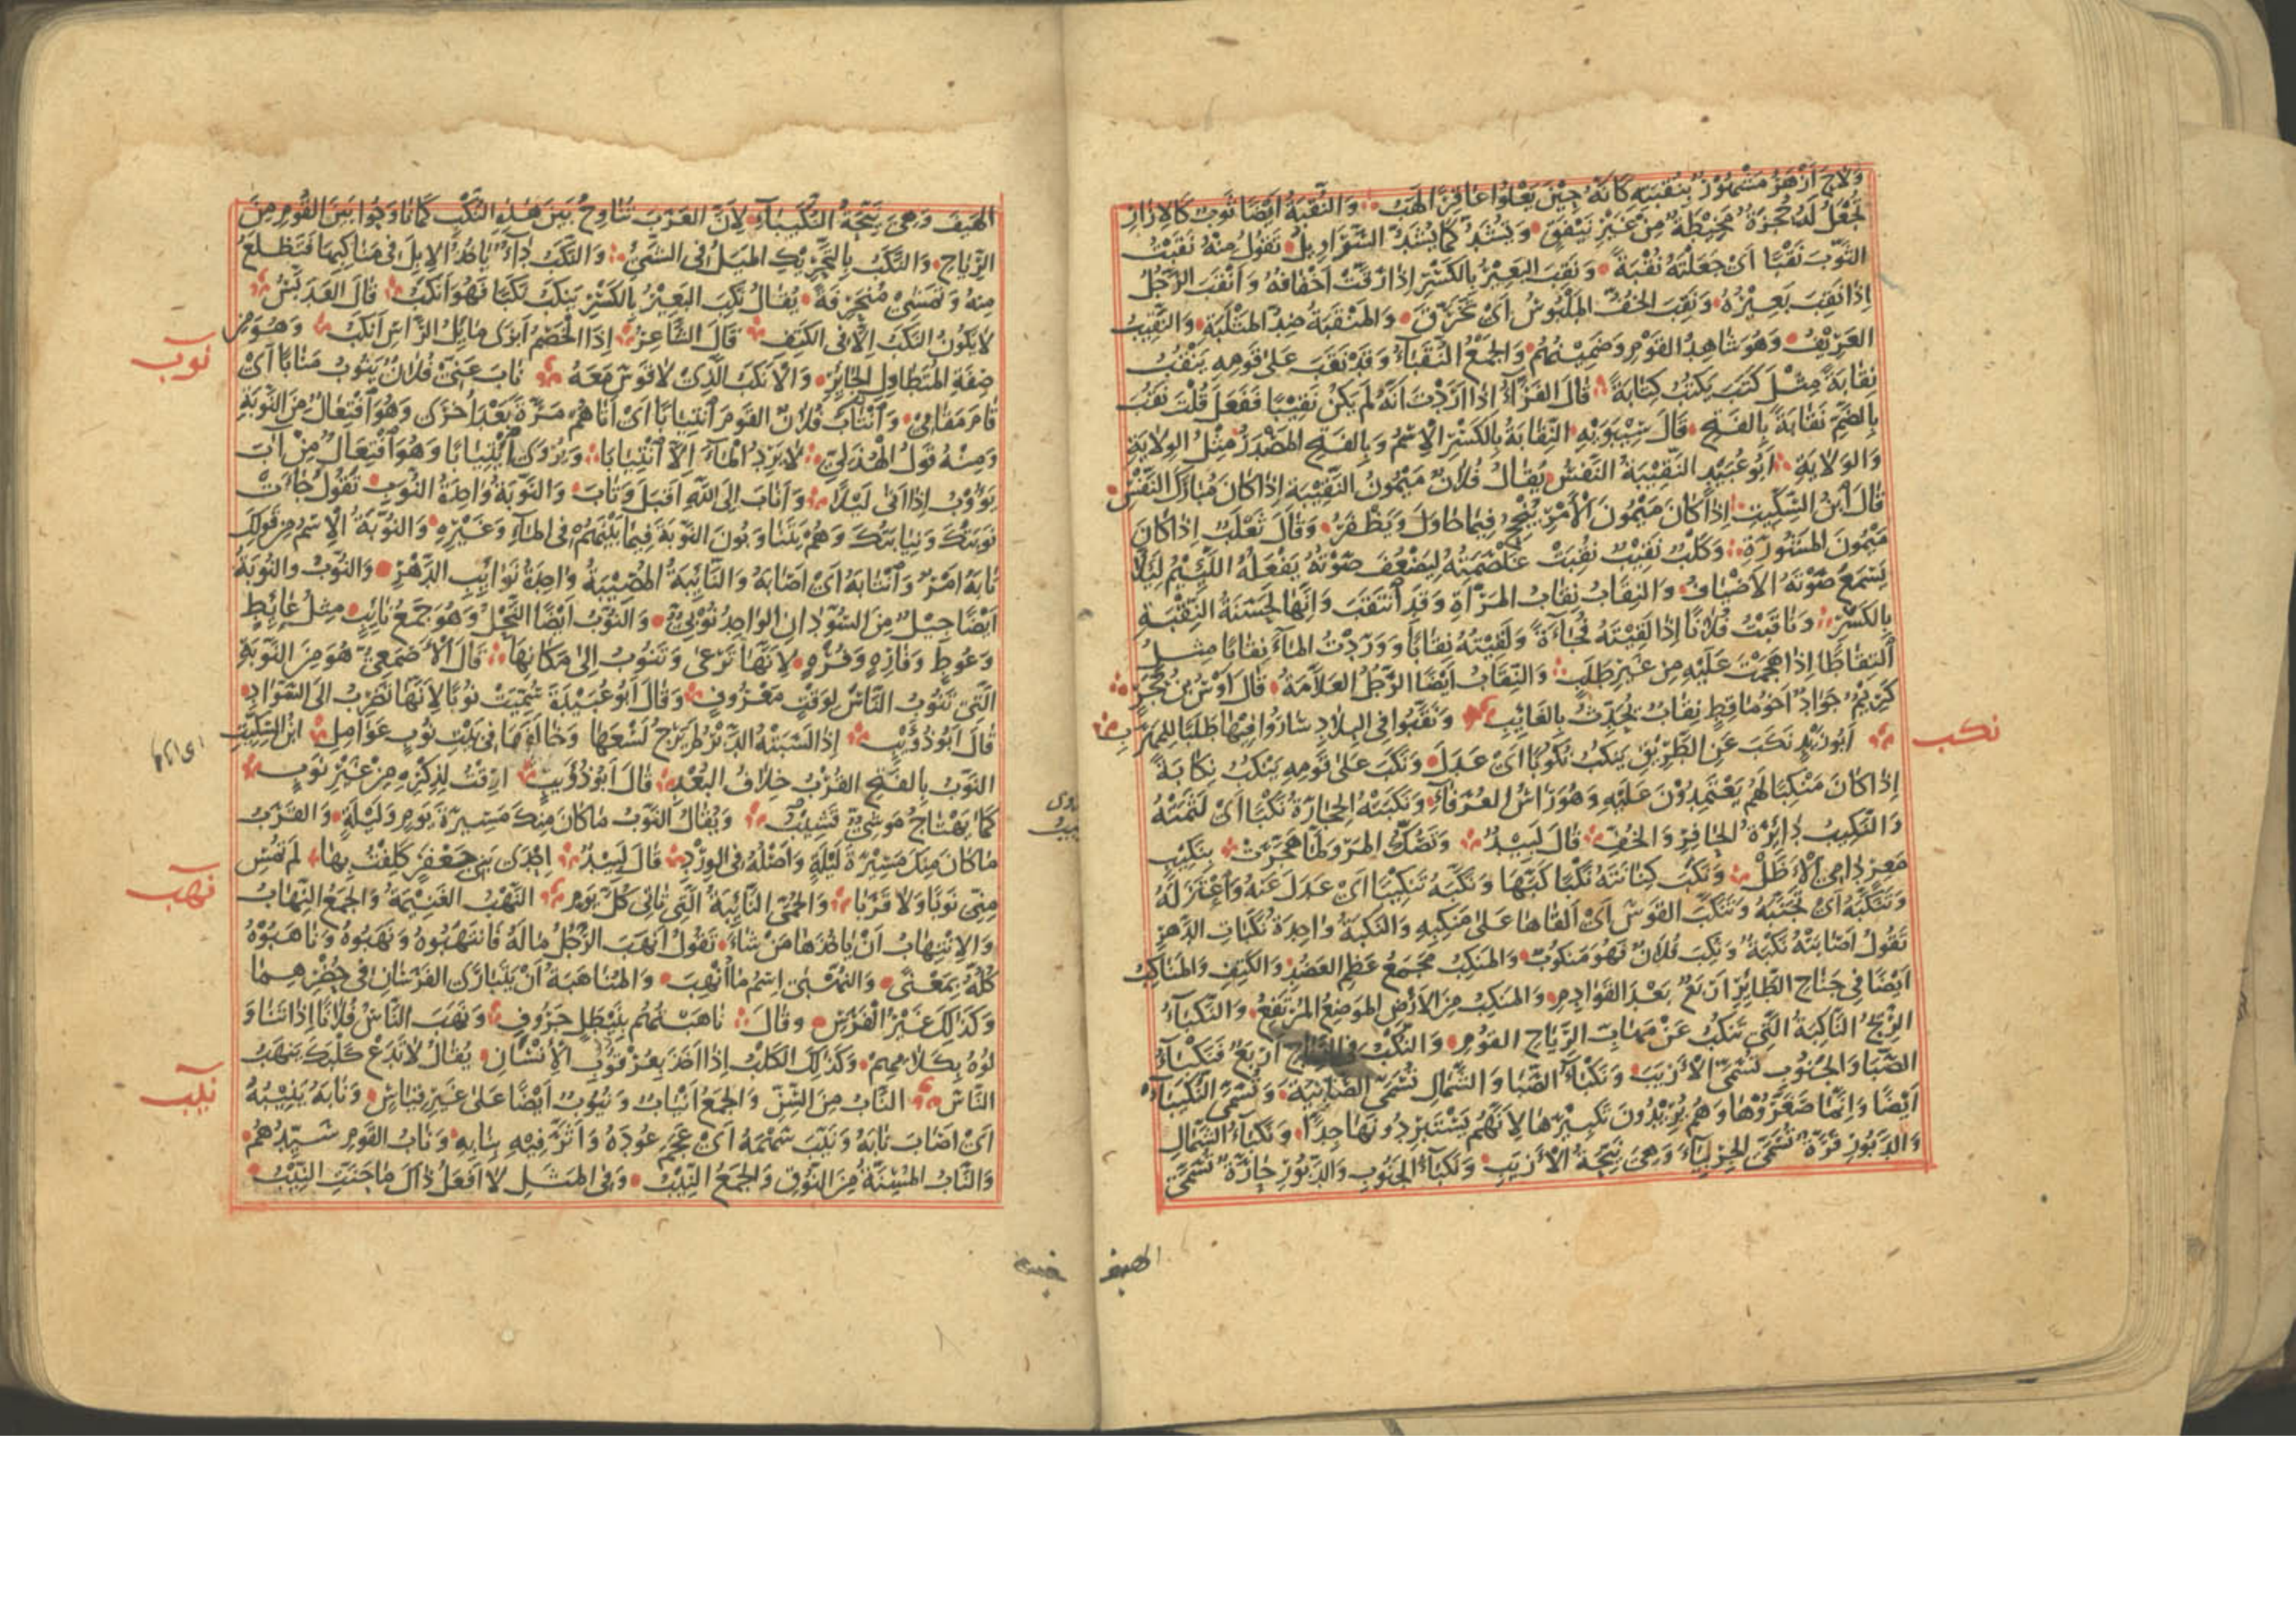 ولاح ازهر مشهور بنقبته كانه حين يعلوا عاقرا لهب والنقبة ايضا ثوب كالازار
تجعل له حجزة مخيطة من غير نيفق ويشد كما يشد السراويل تقول منه نقبت
الثوب نقبا اى جعلته نقبة ونقب البعير بالكسر اذا رقت اخفافه وانقب الرجل
اذا نقب بعيره ونقب الخف الملبوس اى تخرق والمنقبة ضد المثلبة والنقيب
العريف وهو شاهد القوم وضمينهم والجمع النقباء وقد نقب على قومه ينقب
نقابة مثل كتب يكتب كتابة قال الفراء اذا اردت انه لم يكن نقيبا ففعل قلت نقب
بالضم نقابة بالفتح قال سيبويه النقابة بالكسر الاسم وبالفتح المصدر مثل الولاية
والولاية ابو عبيد النقيبة النفس يقال فلان ميمون النقيبة اذا كان مبارك النفس
قال ابن السكيت اذا كان ميمون الامر ينجح فيما حاول ويظفر وقال ثعلب اذا كان
ميمون المشورة وكلب نقيب نقبت غلصمته ليضعف صوته يفعله اللئيم لئلا
يسمع صوته الاضياف والنقاب نقاب المراة وقد انتقبت وانها لحسنة النقبة
بالكسر وناقبت فلانا اذا لقيته فجاءة ولقيته نقابا ووردت الماء نقابا مثل
التقاطا اذا هجمت عليه من غير طلب والنقاب ايضا الرجل العلامة قال اوس بن حجر
كريم جواد اخو ماقط نقاب يحدث بالغائب ونقبوا فى البلاد ساروا فيها طلبا للمهرب
نكب
ابو زيد نكب عن الطريق ينكب نكوبا اى عدل ونكب على قومه ينكب نكابة
اذا كان منكبا لهم يعتمدون عليه وهو راس العرفاء ونكبته الحجارة نكبا اى لثمته
والنكيب دائرة الحافر والخف قال لبيد وتصك المرو لما هجرت بنكيب
معر دامى الاظل ونكب كنانته نكبا كبها ونكبه تنكيبا اى عدل عنه واعتزله
وتنكبه اى تجنبه وتنكب القوس اى القاها على منكبه والنكبة واحدة نكبات الدهر
تقول اصابته نكبة ونكب فلان فهو منكوب والمنكب مجمع عظم العضد والكتف والمناكب
ايضا فى جناح الطائر اربع بعد القوادم والمنكب من الارض الموضع المرتفع والنكباء
الريح الناكبة التى تنكب عن مهاب الرياح القوم والنكب فى الرياح اربع فنكباء
الصبا والجنوب تسمى الازيب ونكباء الصبا والشمال تسمى الصابية وتسمى النكيباء
ايضا وانما صغروها وهم يريدون تكبيرها لانهم يستبردونها جدا ونكباء الشمال
والدبور قرة تسمى الجربياء وهى نيحة الازيب ونكباء الجنوب والدبور حارة تسمى
الهيف
الهيف وهى نيحة النكيباء لان العرب تناوح بين هذه النكب كما ناوحوا بين القوم من
الرياح والنكب بالتحريك الميل فى الشئ والنكب داء ياخذ الابل فى مناكبها فتظلع
منه وتمشى منحرفة يقال نكب البعير بالكسر ينكب نكبا فهو انكب قال العدبس
لا يكون النكب الا فى الكتف قال الشاعر اذا الخصم ابزى مائل الراس انكب وهو من
صفة المتطاول الجائر والانكب الذى لا قوس معه ناب عنى فلان ينوب منابا اى
نوب
قام مقامى وانتاب فلان القوم انتيابا اى اتاهم مرة بعد اخرى وهو افتعال من النوبة
ومنه قول الهذلى لا يرد الماء الا انتيابا ويروى ايتيابا وهو افتعال من اب
يؤوب اذا اتى ليلا واناب الى الله اقبل وتاب والنوبة واحدة النوب تقول جاءت
نوبتك ونيابتك وهم يتناوبون النوبة فيما بينهم فى الماء وغيره والنوبة الاسم من قولك
نابه امر وانتابه اى اصابه والنائبة المصيبة واحدة نوائب الدهر والنوب والنوبة
ايضا جيل من السودان الواحد نوبى والنوب ايضا النحل وهو جمع نائب مثل عائط
وعوط وفاره وفره لانها ترعى وتنوب الى مكانها قال الاصمعى هو من النوبة
التى تنوب الناس لوقت معروف وقال ابو عبيدة سميت نوبا لانها تضرب الى السواد
قال ابو ذؤيب اذا لسبته الدبر لم يرج لسعها وخالفها فى بيت نوب عوامل ابن السكيت
النوب بالفتح القرب خلاف البعد قال ابو ذؤيب ارقت لذكره من غير نوب
كما يهتاج موشى قشيب ويقال النوب ما كان منك مسيرة يوم وليلة والقرب
ما كان منك مسيرة ليلة واصله فى الورد قال لبيد احدى بنى جعفر كلفت بها لم تمس
منى نوبا ولا قربا والحمى النائبة التى تاتى كل يوم النهب الغنيمة والجمع النهاب
نهب
والانتهاب ان ياخذها من شاء تقول انهب الرجل ماله فانتهبوه ونهبوه وناهبوه
كله بمعنى والنهبى اسم ما انهب والمناهبة ان يتبارى الفرسان فى حضرهما
وكذلك غير الفرس وقال ناهبتهم بنيطل جروف ونهب الناس فلانا اذا تناو
لوه بكلامهم وكذلك الكلب اذا اخذ بعرقوب الانسان يقال لا تدع كلبك ينهب
الناس الناب من السن والجمع انياب ونيوب ايضا على غير قياس ونابه ينيبه
نيب
اى اصاب نابه ونيب سهمه اى عجم عوده واثر فيه بنابه وناب القوم سيدهم
والناب المسنة من النوق والجمع النيب وفى المثل لا افعل ذاك ما حنت النيب